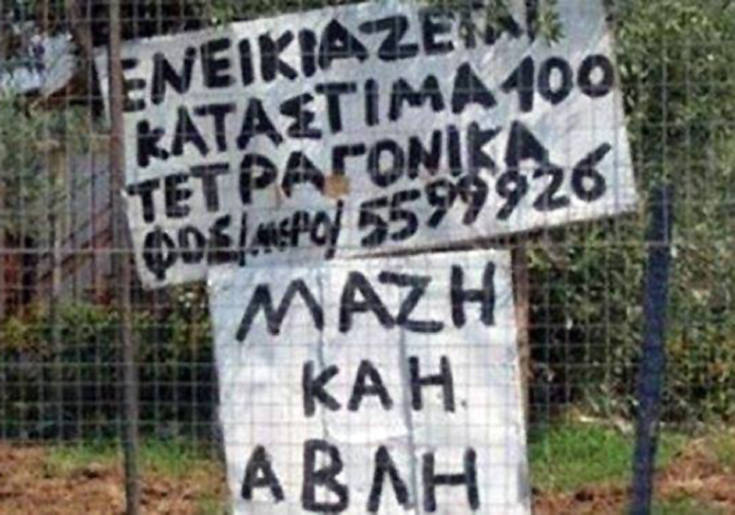 ΕΝΕΙΚΙΑΖΕΤΑΙ
ΚΑΤΑΣΤΙΜΑ 100
ΤΕΤΡΑΓΟΝΙΚΑ
ΦΟΣ/ΝΕΡΟ/ 5599926
ΜΑΖΗ
ΚΑ Η.
ΑΒΛΗ